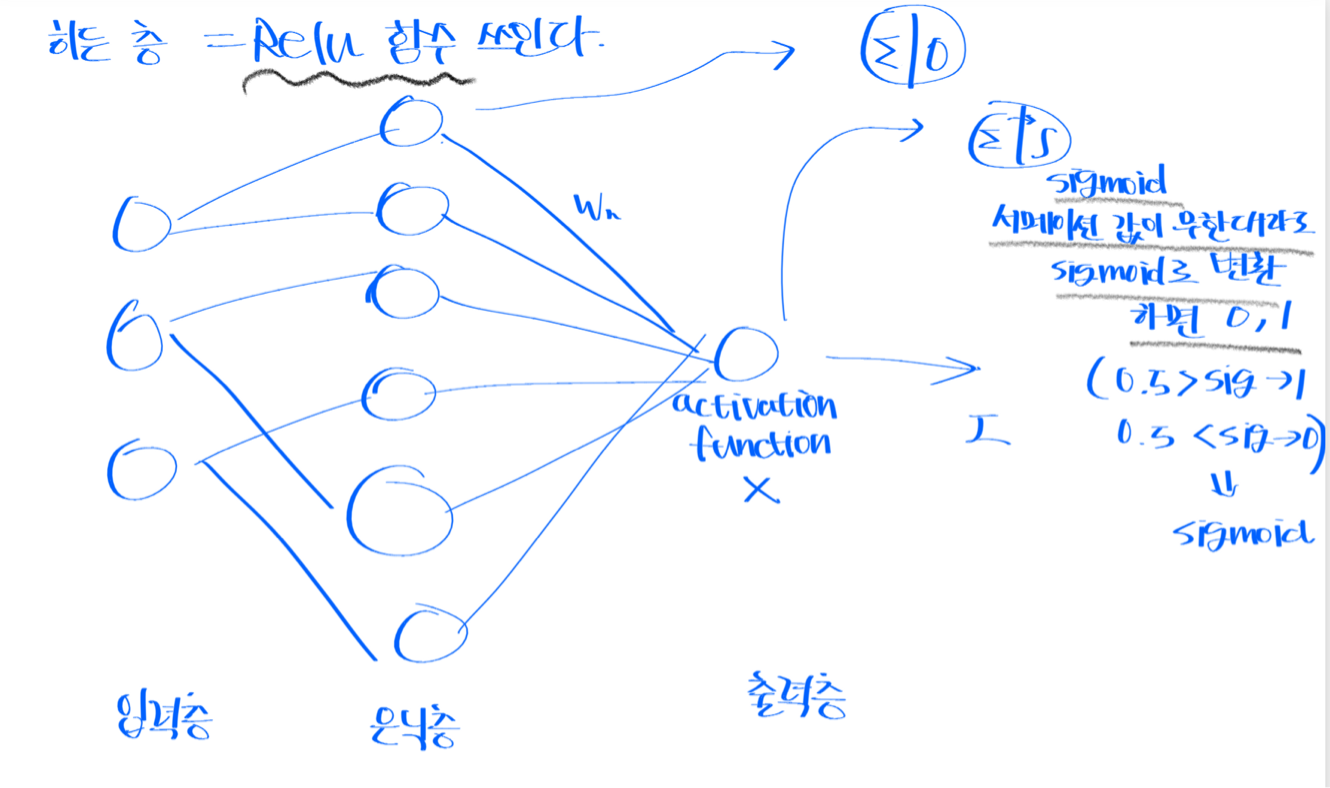 히든 층 = Relu 함수 쓰인다.
Σ|0
Σ|S
sigmoid
시메이션 값이 무한대라로
sigmoid로 변환
하면 0, 1
(0.5>sig→1
0.5<sig→0)
⇓
sigmoid
Wn
activation
function
X
입력층
은닉층
출력층